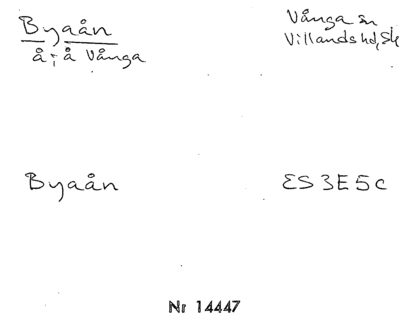 Byaån
å; å Vånga
Vånga sn
Villands hd, Sk
Byaån
ES 3E 5c
Nr 14447